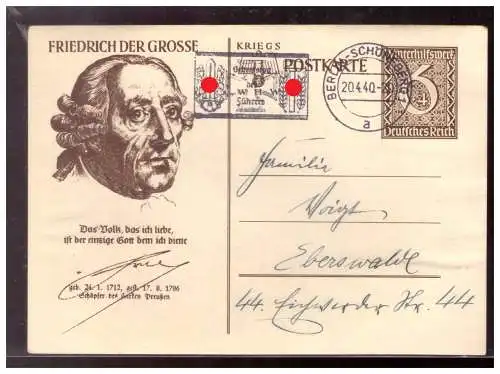 FRIEDRICH DER GROSSE
KRIEGS
POSTKARTE
W H W
Führers
BERLIN-SCHÖNEBERG 1
20.4.40
a
Winterhilfswerk
6
Deutsches Reich
Das Volk, das ich liebe,
ist der einzige Gott dem ich diene
geb. 24. 1. 1712, gest. 17. 8. 1786
Schöpfer des starken Preußen
Familie
Voigt
Eberswalde
44. Eichwerder Str. 44